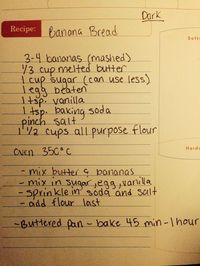 Dark
Recipe: Banana Bread
3-4 bananas (mashed)
1/3 cup melted butter
1 cup sugar (can use less)
1 egg beaten
1 tsp. vanilla
1 tsp. baking soda
pinch salt
1 1/2 cups all purpose flour
oven 350°C
- mix butter & bananas
- mix in sugar, egg, vanilla
- sprinkle in soda and salt
- add flour last
- Buttered pan - bake 45 min - 1 hour